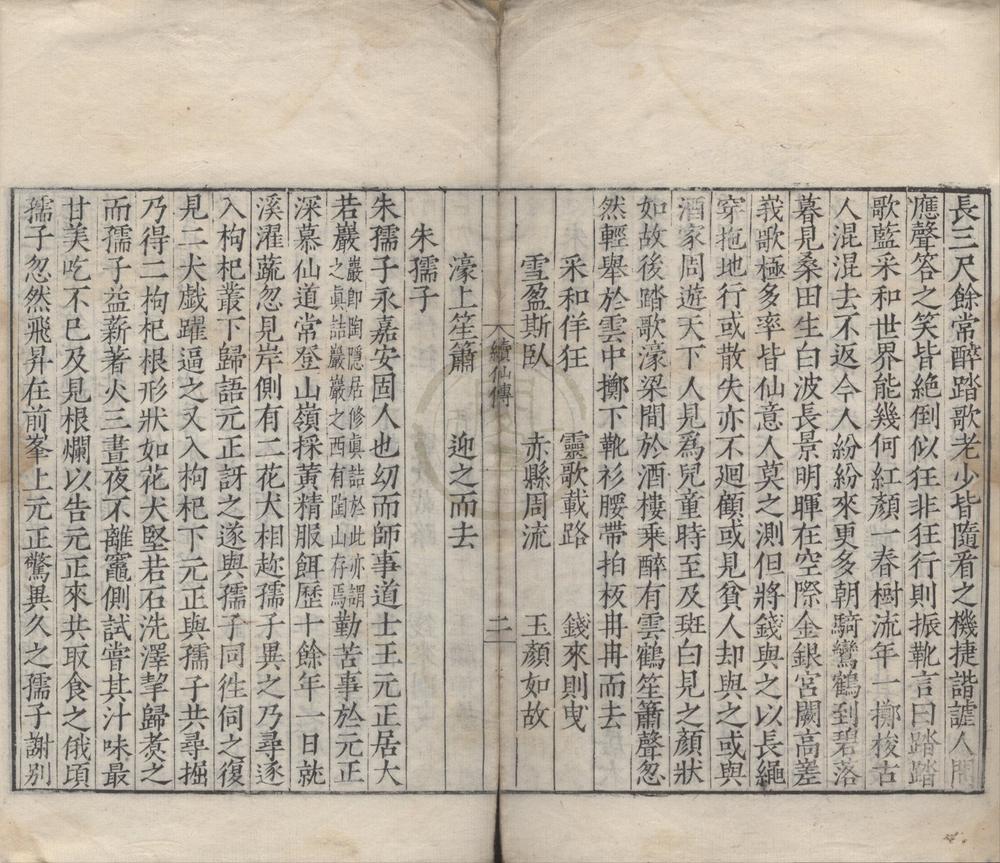 長三尺餘常醉踏歌老少皆隨看之機捷諧謔人問
應聲答之笑皆絕倒似狂非狂行則振靴言曰踏踏
歌藍采和世界能幾何紅顏一春樹流年一擲梭古
人混混去不返今人紛紛來更多朝騎鸞鶴到碧落
暮見桑田生白波長景明暉在空際金銀宮闕高嵳
峩歌極多率皆仙意人莫之測但將錢與之以長繩
穿拖地行或散失亦不廻顧或見貧人却與之或與
酒家周遊天下人見爲兒童時至及斑白見之顏狀
如故後踏歌濠梁間於酒樓乘醉有雲鶴笙簫聲忽
然輕舉於雲中擲下靴衫腰帶拍板冉冉而去
采和佯狂　靈歌載路　錢來則曳
雪盈斯臥　赤縣周流　玉顏如故
續仙傳　二
濠上笙簫　迎之而去
朱孺子
朱孺子永嘉安固人也幼而師事道士王元正居大
若巖巖即陶隱居修眞誥於此亦謂之眞誥巖巖之西有陶山存焉勤苦事於元正
深慕仙道常登山嶺採黃精服餌歷十餘年一日就
溪濯蔬忽見岸側有二花犬相趂孺子異之乃尋逐
入枸杞叢下歸語元正訝之遂與孺子同徃伺之復
見二犬戲躍逼之又入枸杞下元正與孺子共尋掘
乃得二枸杞根形狀如花犬堅若石洗澤挈歸煮之
而孺子益薪著火三晝夜不離竈側試嘗其汁味最
甘美吃不已及見根爛以告元正來共取食之俄頃
孺子忽然飛昇在前峯上元正驚異久之孺子謝别